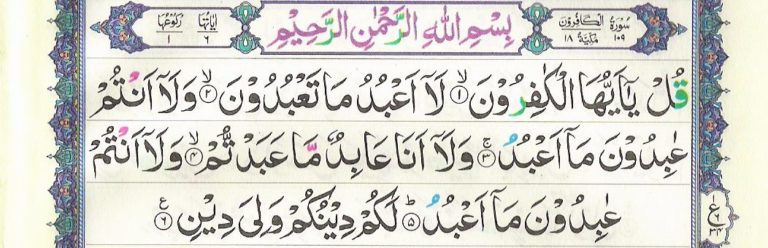 سُوْرَةُ الْكَافِرُوْنَ ١٠٩ مَكِّيَّةٌ ١٨ بِسْمِ اللهِ الرَّحْمٰنِ الرَّحِيْمِ اٰيَاتُهَا ٦ رُكُوْعُهَا ١
قُلْ يٰٓاَيُّهَا الْكٰفِرُوْنَ ۙ﴿۱﴾ لَاۤ اَعْبُدُ مَا تَعْبُدُوْنَ ۙ﴿۲﴾ وَلَاۤ اَنْتُمْ
عٰبِدُوْنَ مَاۤ اَعْبُدُ ۚ﴿۳﴾ وَلَاۤ اَنَا عَابِدٌ مَّا عَبَدْتُّمْ ۙ﴿۴﴾ وَلَاۤ اَنْتُمْ
عٰبِدُوْنَ مَاۤ اَعْبُدُ ؕ﴿۵﴾ لَكُمْ دِيْنُكُمْ وَلِىَ دِيْنِ ﴿۶﴾
ع ١ ٦ ٣٤